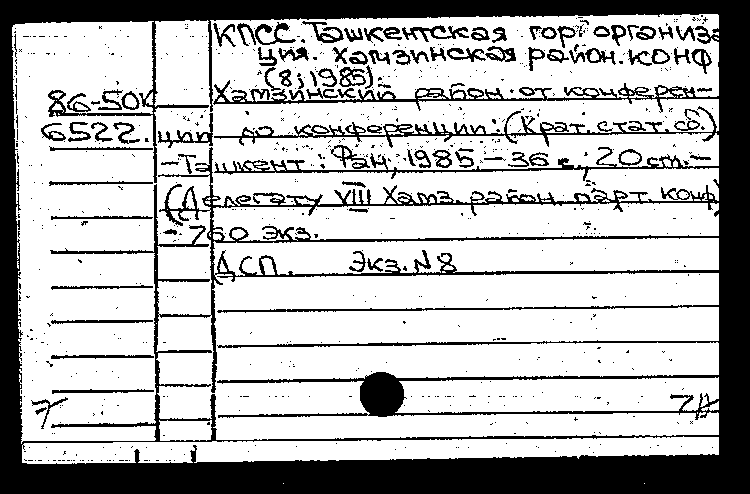 КПСС. Ташкентская гор. организа
ция. Хамзинская район. конф.
(8; 1985).
86-50к Хамзинский район: от конферен-
6522. ции до конференции: (Крат. стат. сб.)
-Ташкент: Фан, 1985. - 36 с.; 20 см. -
(Делегату VIII Хамз. район. парт. конф)
- 760 экз.
ДСП. Экз. N 8
7